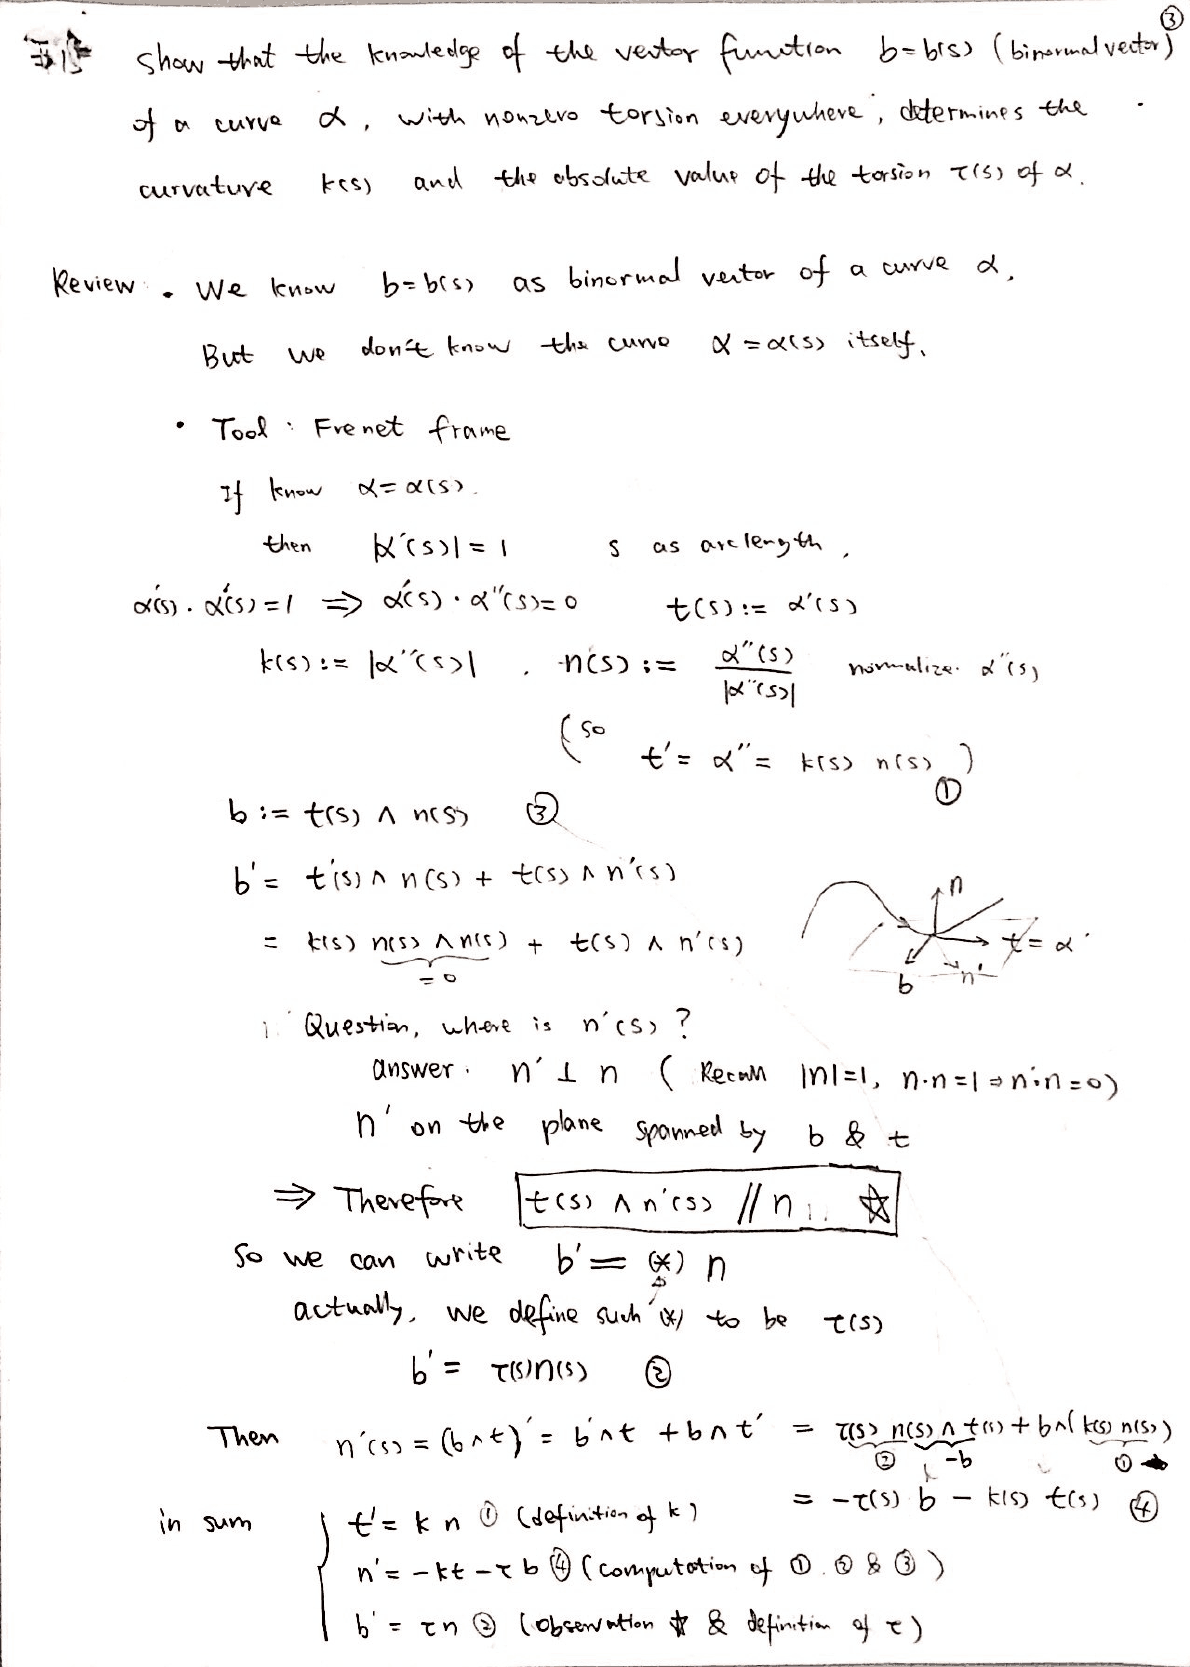 ③
Show that the knowledge of the vector function b=b(s) (binormal vector)
of a curve α, with nonzero torsion everywhere, determines the
curvature k(s) and the absolute value of the torsion τ(s) of α.
Review: • We know b=b(s) as binormal vector of a curve α,
But we don't know the curve α=α(s) itself,
• Tool: Frenet frame
If know α=α(s).
then |α'(s)|=1 s as arclength,
α'(s)·α'(s)=1 ⇒ α'(s)·α''(s)=0 t(s):= α'(s)
k(s):= |α''(s)|, n(s):= α''(s)/|α''(s)| normalize α''(s)
(so t'= α''= k(s) n(s)) ①
b:= t(s) ∧ n(s) ③
b'= t'(s) ∧ n(s) + t(s) ∧ n'(s)
= k(s) n(s) ∧ n(s) + t(s) ∧ n'(s)
=0
n t=α' b n'
Question, where is n'(s)?
answer: n' ⊥ n (Recall |n|=1, n·n=1 ⇒ n'·n=0)
n' on the plane spanned by b & t
⇒ Therefore t(s) ∧ n'(s) // n ☆
So we can write b' = (*) n
actually, we define such (*) to be τ(s)
b'= τ(s)n(s) ②
Then n'(s) = (b∧t)' = b'∧t + b∧t' = τ(s) n(s) ∧ t(s) + b∧(k(s) n(s))
② -b ①
= -τ(s) b - k(s) t(s) ④
in sum t'= k n ① (definition of k)
n'= -kt - τ b ④ (computation of ①. ② & ③)
b'= τn ② (observation ☆ & definition of τ)